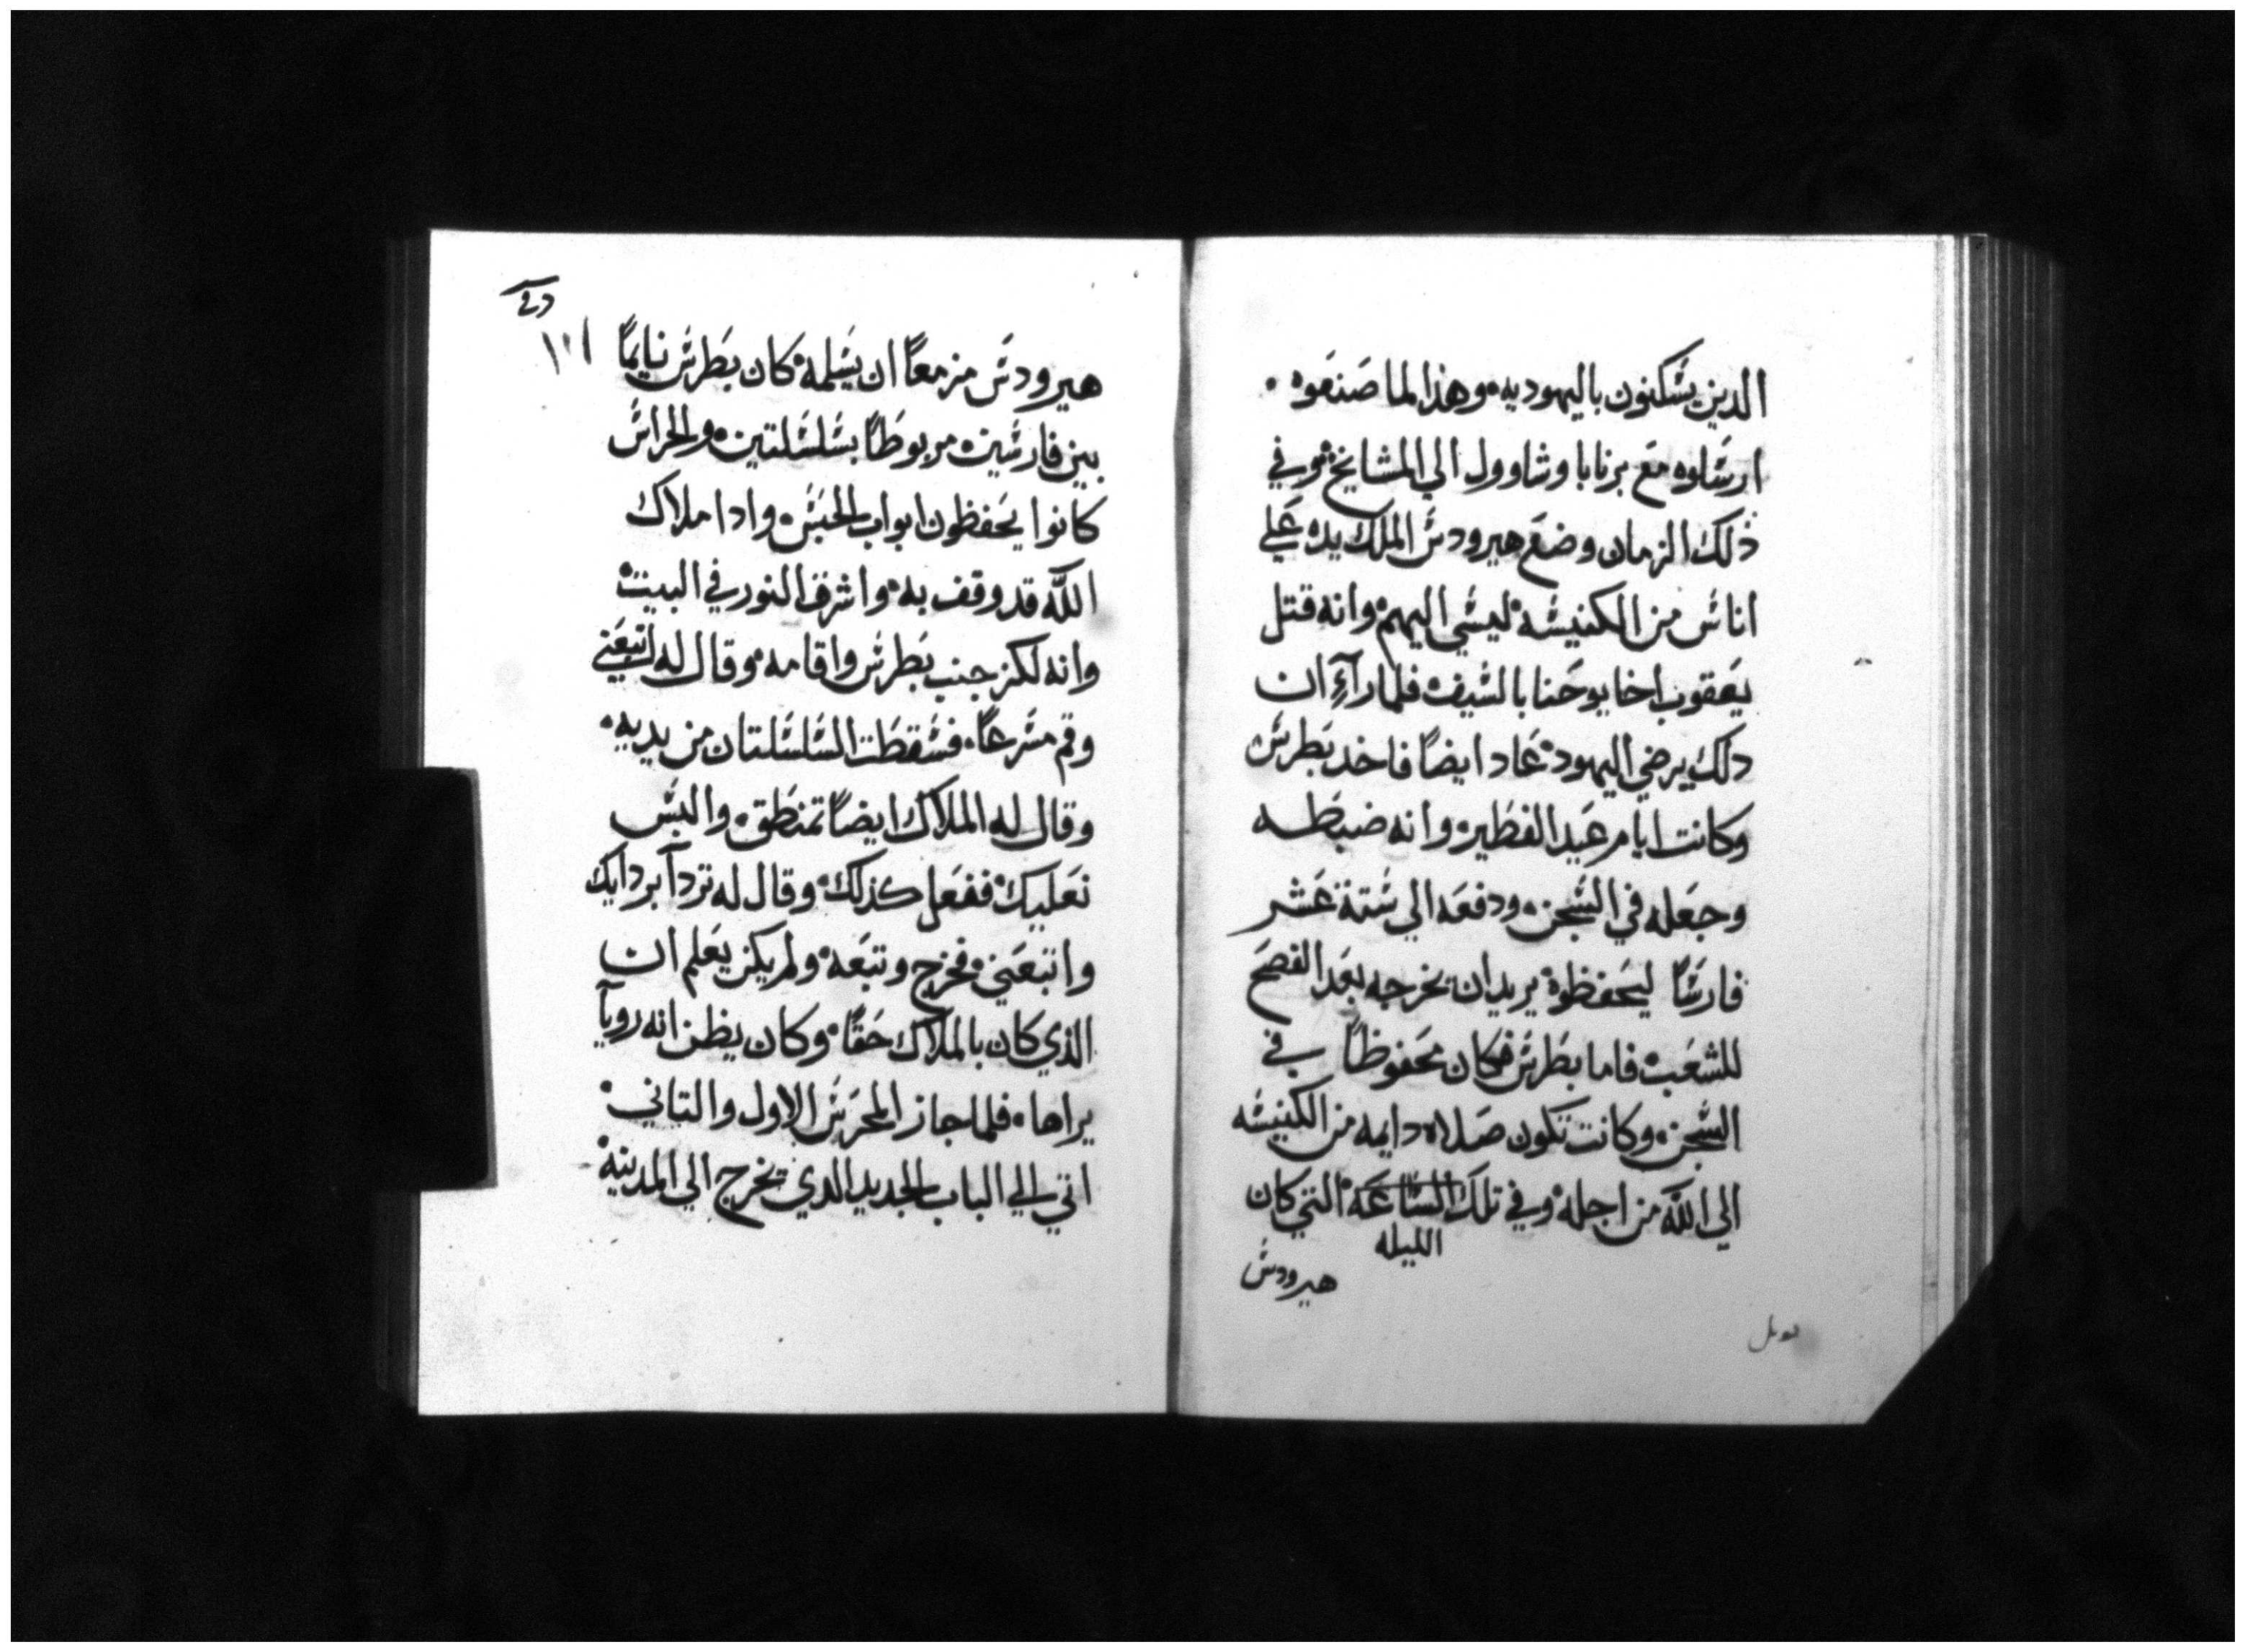 الدين يسكنون باليهوديه وهذا لما صنعوه
ارسلوه مع برنابا وشاوول الي المشايخ وفي
ذلك الزمان وضع هيرودس الملك يده علي
اناس من الكنيسه ليسي اليهم وانه قتل
يعقوب اخا يوحنا بالسيف فلما رآءِ ان
دلك يرضي اليهود عاد ايضاً فاخد بطرس
وكانت ايام عيد الفطير وانه ضبطه
وجعله في السجن ودفعه الي ستة عشر
فارساً ليحفظوة يريدان يخرجه بعد الفصح
للشعب فاما بطرس فكان محفوظاً في
السجن وكانت تكون صلاه دايمه من الكنيسه
الي الله من اجله وفي تلك الساعة التي كان
الليله
هيرودس
هيرودس مزمعاً ان يسلمه كان بطرس نايماً
بين فارسين مربوطاً بسلسلتين والحراس
كانوا يحفظون ابواب الحبس وادا ملاك
الله قد وقف به واشرق النور في البيت
وانه لكز جنب بطرس واقامه وقال له اتبعني
وقم مسرعاً فسقطت السلسلتان من يديه
وقال له الملاك ايضاً تمنطق والبس
نعليك ففعل كذلك وقال له تردآ بردايك
واتبعني فخرج وتبعه ولم يكن يعلم ان
الذي كان بالملاك حقاً وكان يظن انه رويآ
يراها فلما جاز المحرس الاول والتاني
اتي الي الباب الجديد الدي يخرج الي المدينة